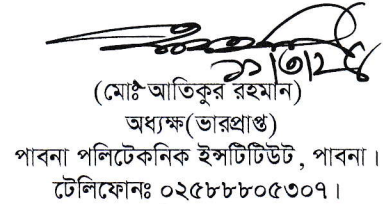 ১১/৩/২৫
(মোঃ আতিকুর রহমান)
অধ্যক্ষ(ভারপ্রাপ্ত)
পাবনা পলিটেকনিক ইন্সটিটিউট, পাবনা।
টেলিফোনঃ ০২৫৮৮৮০৫৩০৭।